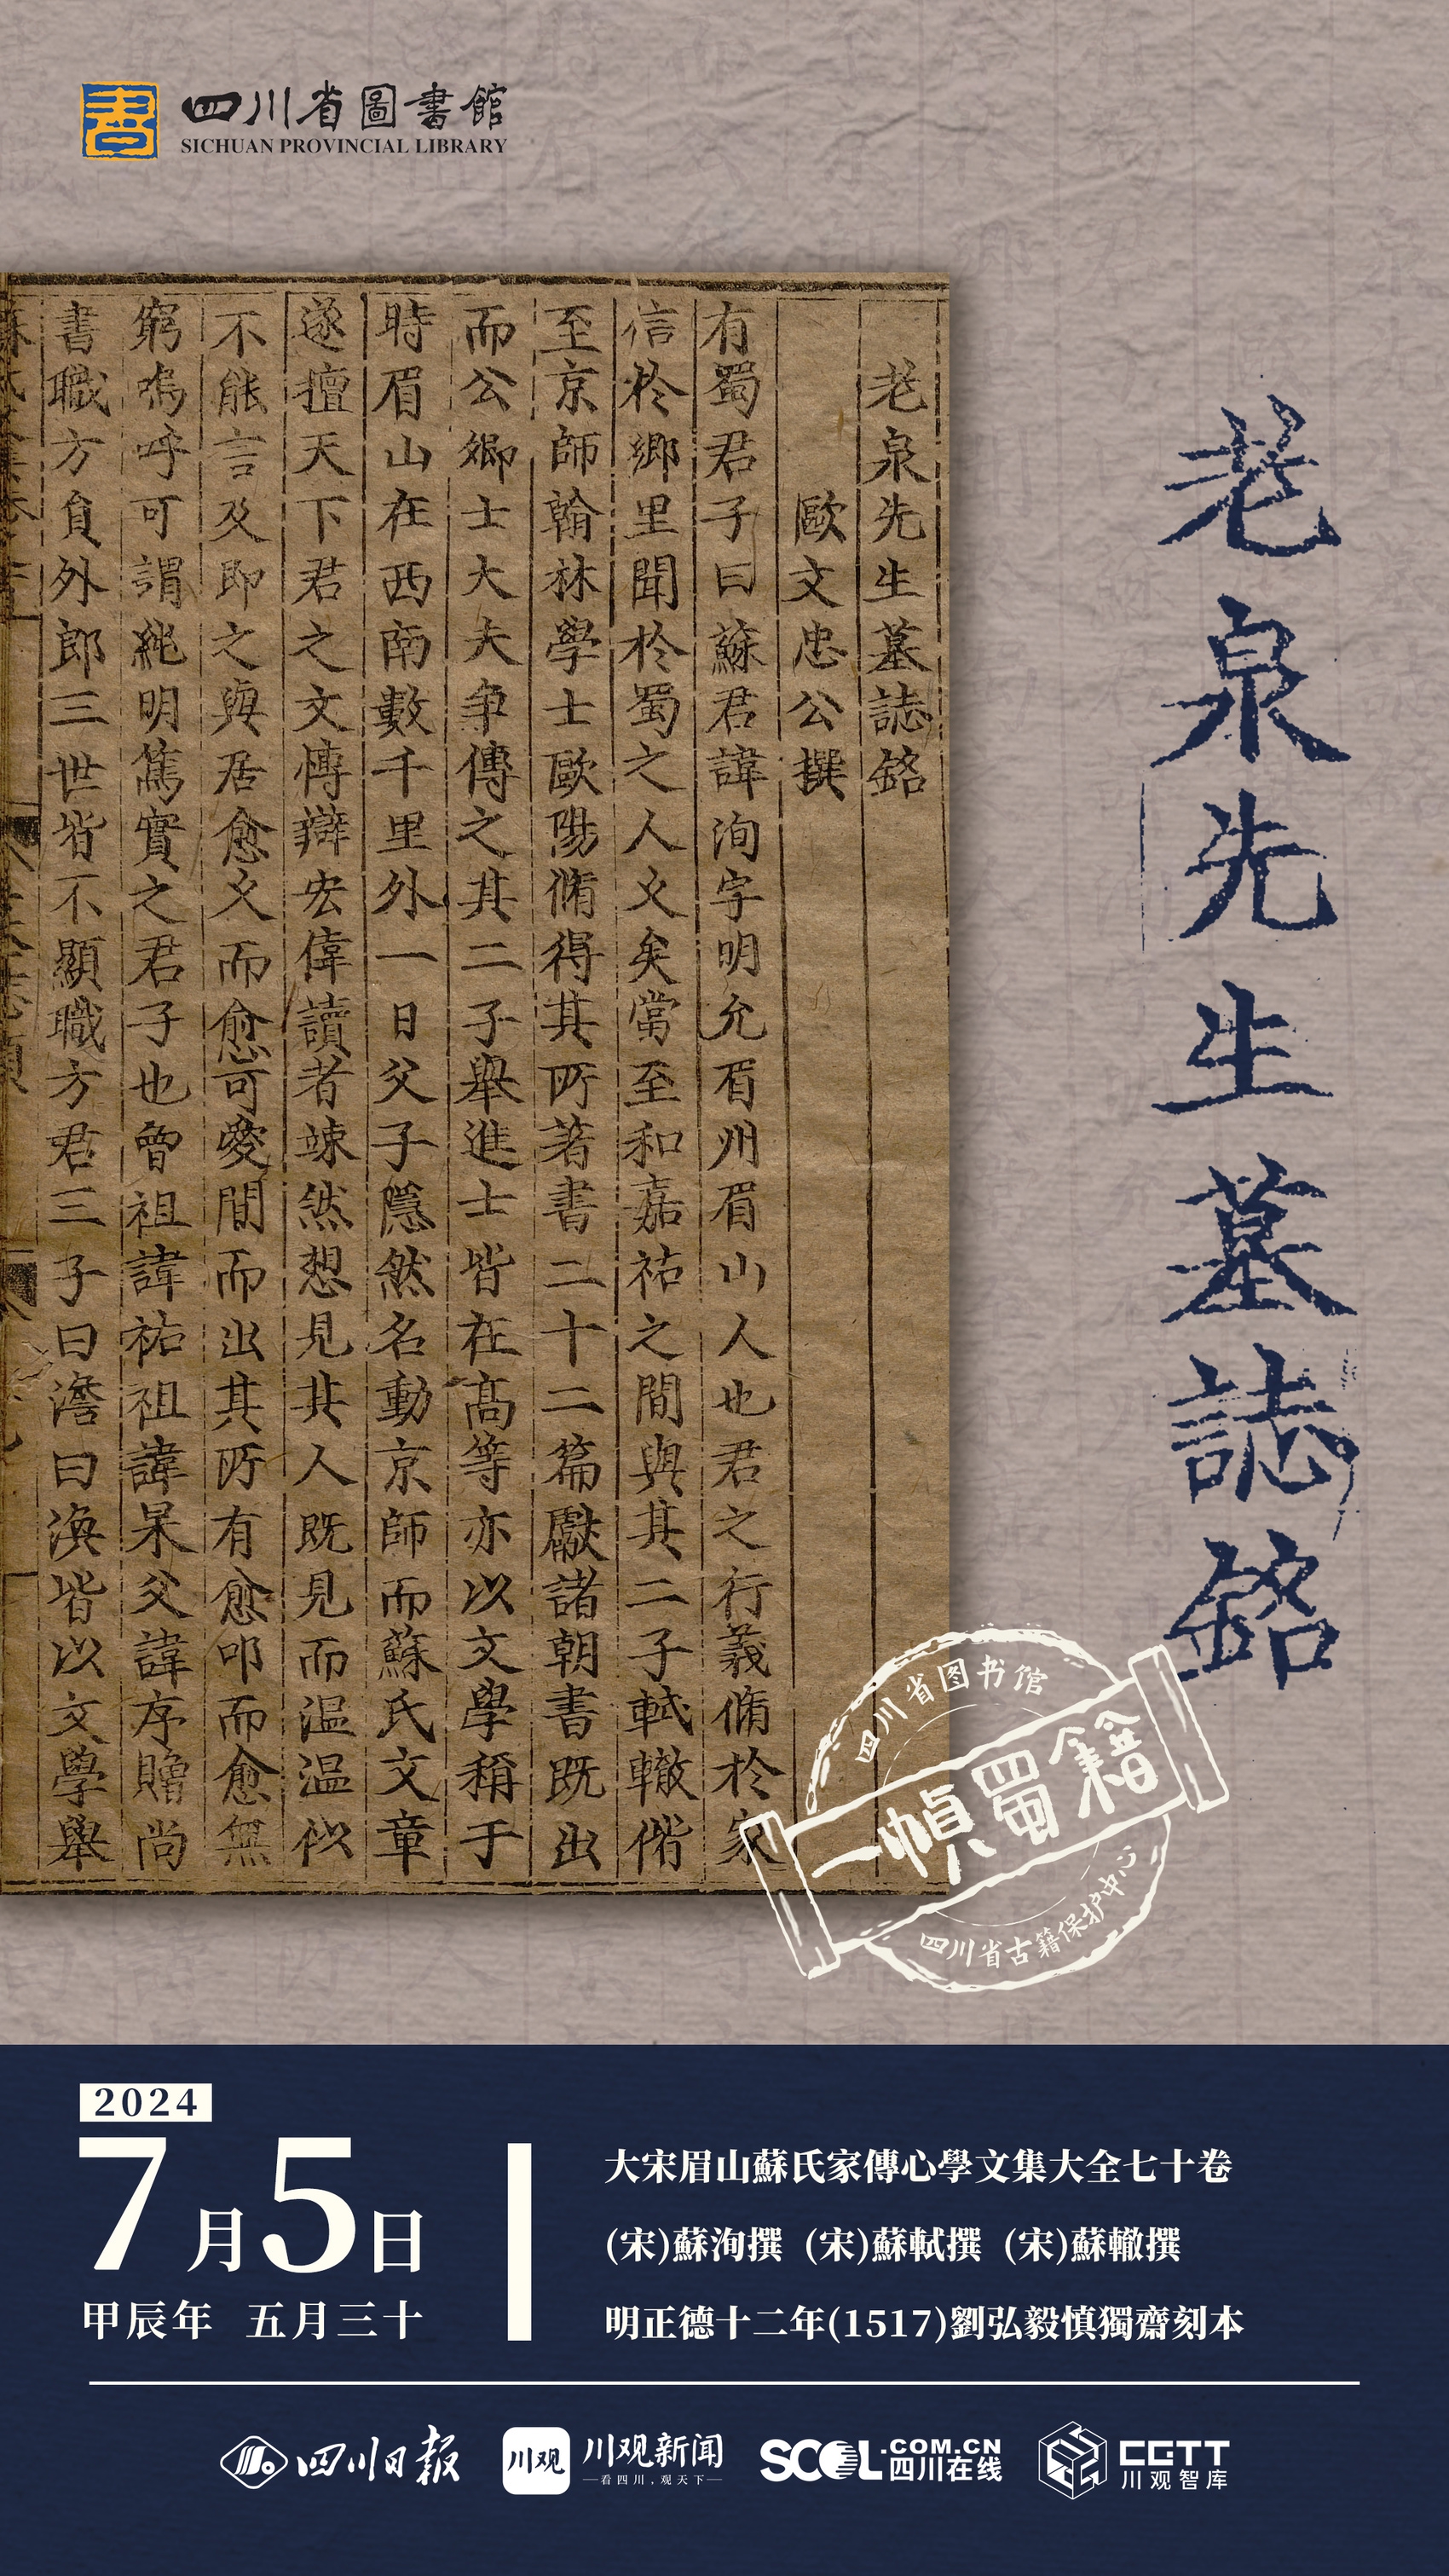 四川省圖書館
SICHUAN PROVINCIAL LIBRARY
老泉先生墓誌銘
老泉先生墓誌銘
歐文忠公撰
有蜀君子曰蘇君諱洵字明允眉州眉山人也君之行義脩於家
信於鄉里聞於蜀之人久矣當至和嘉祐之間與其二子軾轍偕
至京師翰林學士歐陽脩得其所著書二十二篇獻諸朝書既出
而公卿士大夫爭傳之其二子舉進士皆在髙等亦以文學稱于
時眉山在西南數千里外一日父子隱然名動京師而蘇氏文章
遂擅天下君之文博辯宏偉讀者竦然想見其人既見而温温似
不能言及即之與居愈久而愈可愛間而出其所有愈叩而愈無
窮嗚呼可謂純明篤實之君子也曾祖諱祐祖諱杲父諱序贈尚
書職方負外郎三世皆不顯職方君三子曰澹曰渙皆以文學舉
四川省图书馆
一幀蜀籍
四川省古籍保护中心
2024
7月5日
甲辰年 五月三十
大宋眉山蘇氏家傳心學文集大全七十卷
(宋)蘇洵撰 (宋)蘇軾撰 (宋)蘇轍撰
明正德十二年(1517)劉弘毅慎獨齋刻本
四川日报
川观
川观新闻
看四川,观天下
SCOL.COM.CN
四川在线
CGTT
川观智库